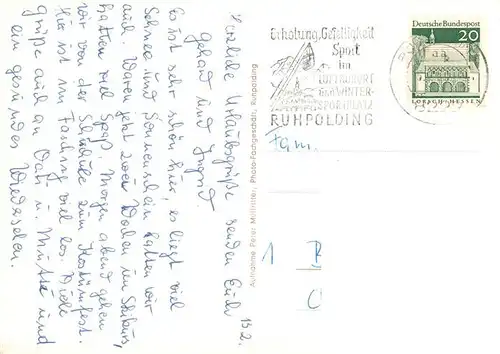 15.2.
Herzliche Urlaubsgrüße senden Euch
Gerhard und Ingrid.
Es ist sehr schön hier, es liegt viel
Schnee und Sonnenschein hatten wir
auch. Waren jetzt zwei Wochen im Skikurs,
hatten viel Spaß. Morgen abend gehen
wir von der Skischule zum Kostümfest.
Hier ist im Fasching viel los. Viele
Grüße auch an Vati u. Mutti und
ein gesundes Wiedersehen.
Aufnahme Peter Mollrister, Photo-Fachgeschäft, Ruhpolding
Erholung, Geselligkeit
Sport
im
LUFTKURORT
UND WINTER-
SPORTPLATZ
RUHPOLDING
Deutsche Bundespost
20
LORSCH · HESSEN
Fam.
1